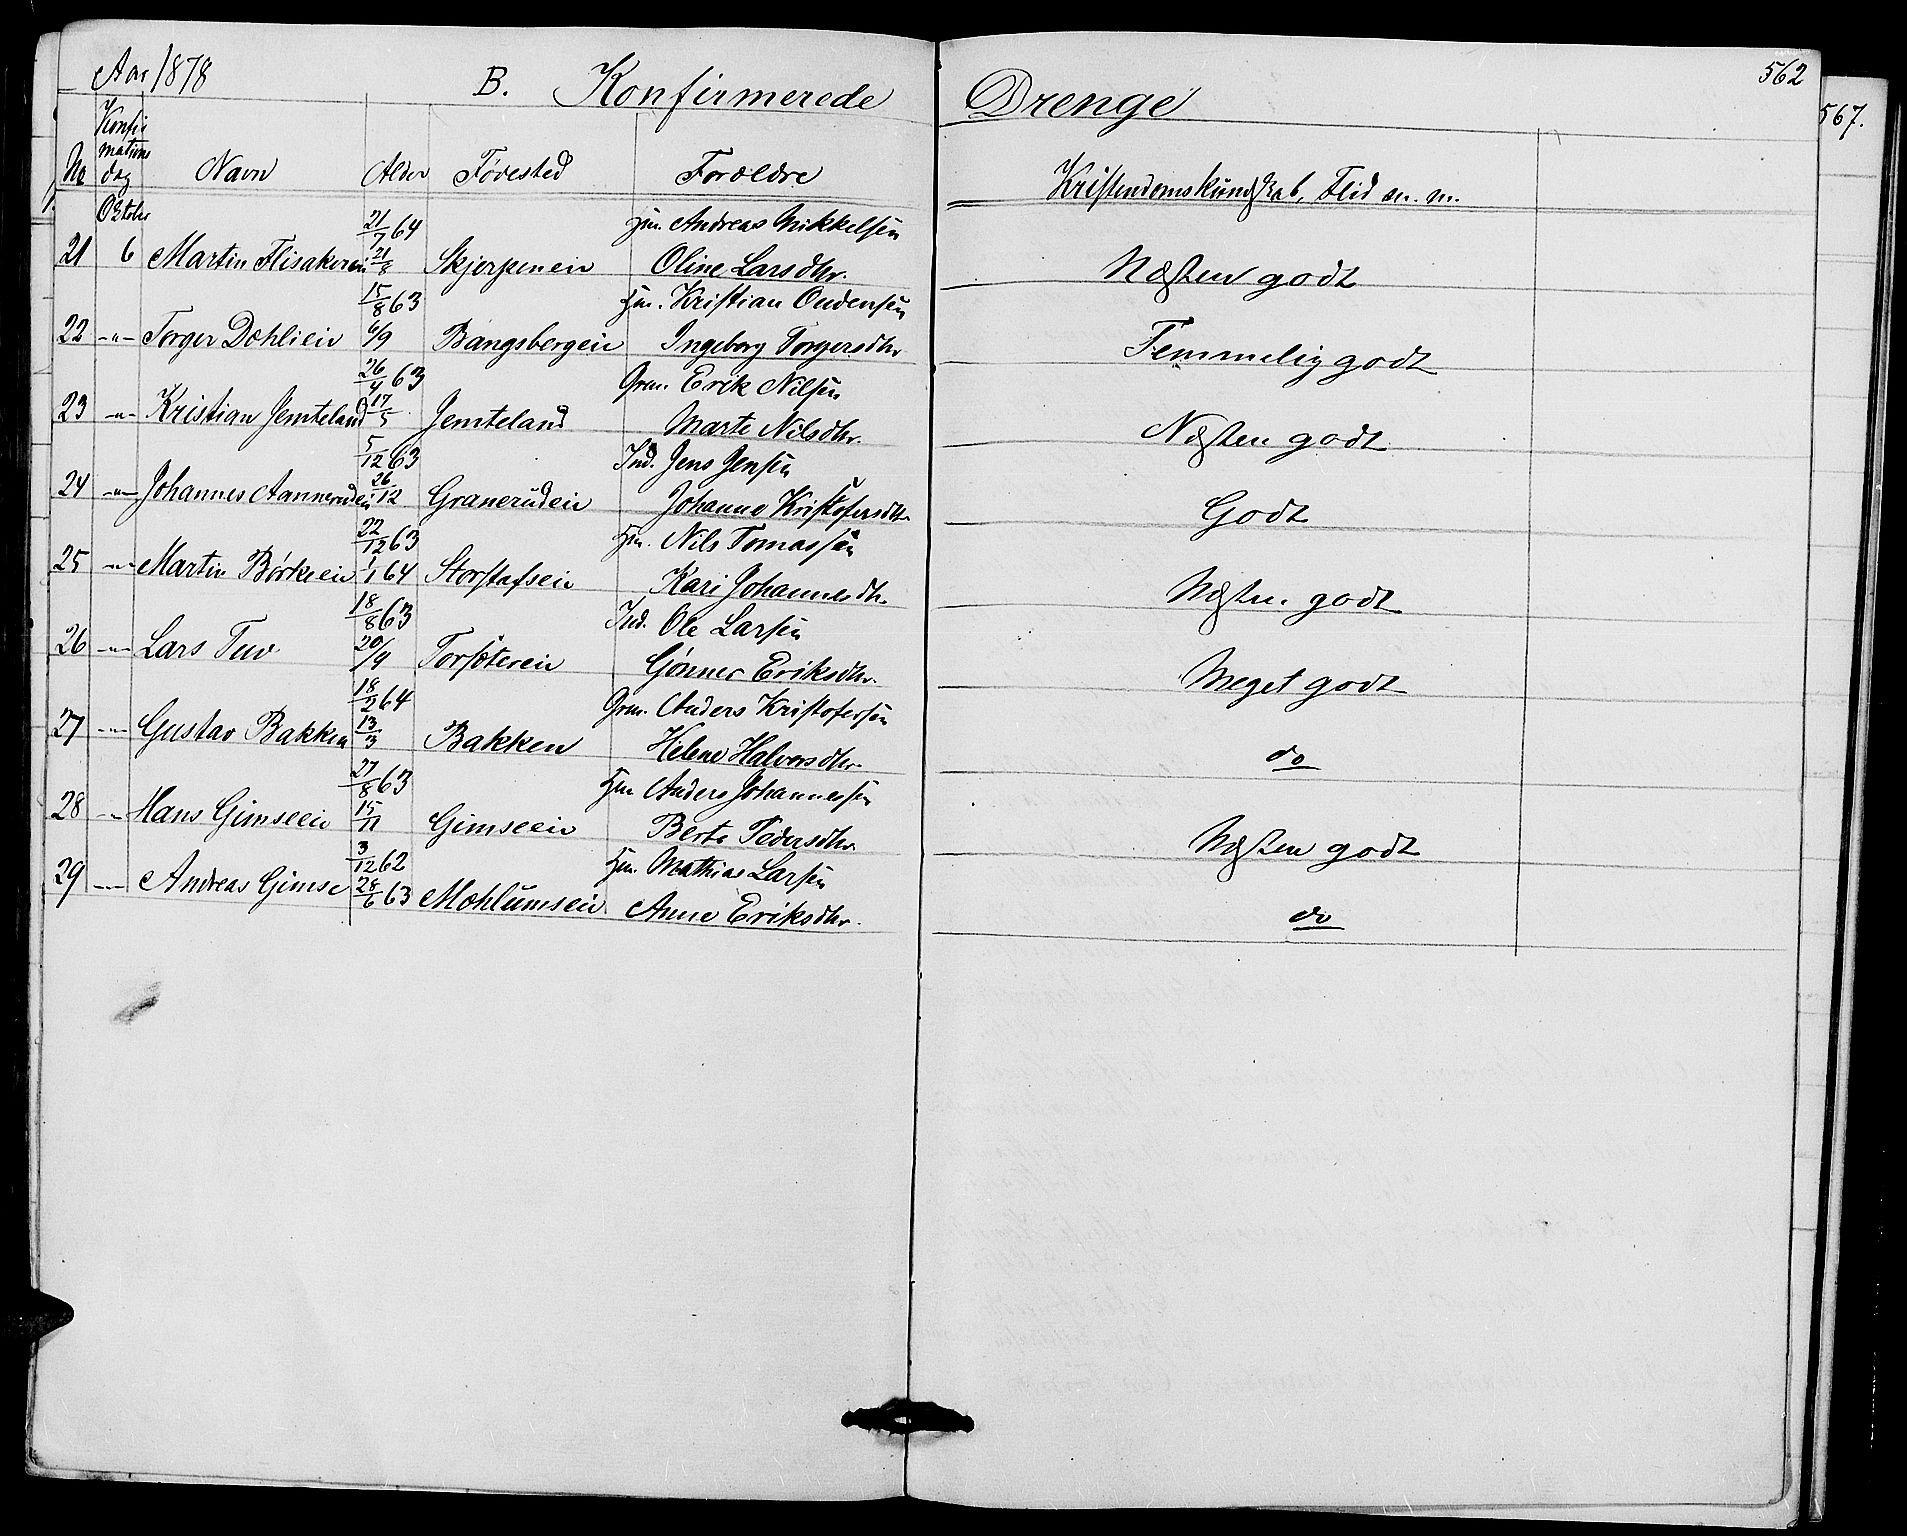 Aar 1878 B. Konfirmerede Drenge 562
567.
No Konfirmations dag Navn Alder Fødested Forældre Kristendomskundskab, Flid m. m.
Oktober 21/7 64 Hm. Andreas Mikkelsen
21 6 Martin Flisakereie 21/8 Skjerpeneie Oline Larsdtr. Næsten godt
15/8 63 Hm. Kristian Oudensen
22 -"- Torger Dæhlieie 6/9 Bangsbergeie Ingeborg Torgersdtr Temmelig godt
26/4 63 Grm. Erik Nilsen
23 -"- Kristian Jemteland 17/5 Jemteland Marte Nilsdtr. Næsten godt
5/12 63 Ind. Jens Jensen
24 -"- Johannes Aannerudeie 26/12 Granerudeie Johanne Kristofersdtr Godt
22/12 63 Hm. Nils Tomassen
25 -"- Martin Børkeeie 1/1 64 Storstafseie Kari Johannesdtr. Næsten godt
18/8 63 Ind. Ole Larsen
26 -"- Lars Tuv 20/9 Torsætereie Gønner Eriksdtr. Meget godt
18/2 64 Grm. Anders Kristofersen
27 -"- Gustav Bakken 13/3 Bakken Helene Halvorsdtr do
27/8 63 Hm Anders Johannessen
28 -"- Hans Gimseeie 15/11 Gimseeie Berte Pedersdtr. Næsten godt
3/12 62 Hm. Mathias Larsen
29 -"- Andreas Gimse 28/6 63 Mohlumseie Anne Eriksdtr. do